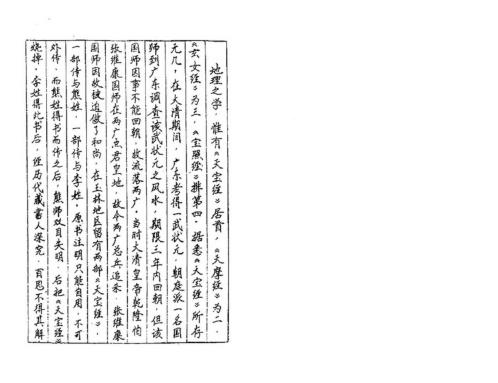 地理之学，惟有《天宝经》居首，《天摩经》为二，
《玄女经》为三，《宝照经》排第四。据悉《天宝经》所存
无几，在大清期间，广东考得一武状元，朝庭派一名国
师到广东调查该武状元之风水，期限三年内回朝，但该
国师因事不能回朝，故流落两广。当时大清皇帝乾隆怕
张维康国师在两广点君皇地，故令两广总兵追杀，张维康
国师因收被追做了和尚，在玉林地区留有两部《天宝经》，
一部传与熊姓，一部传与李姓，原书注明只能自用，不可
外传，而熊姓得书而传之后，熊师双目失明，后把《天宝经》
烧掉，李姓得此书后，经历代藏书人深究，百思不得其解